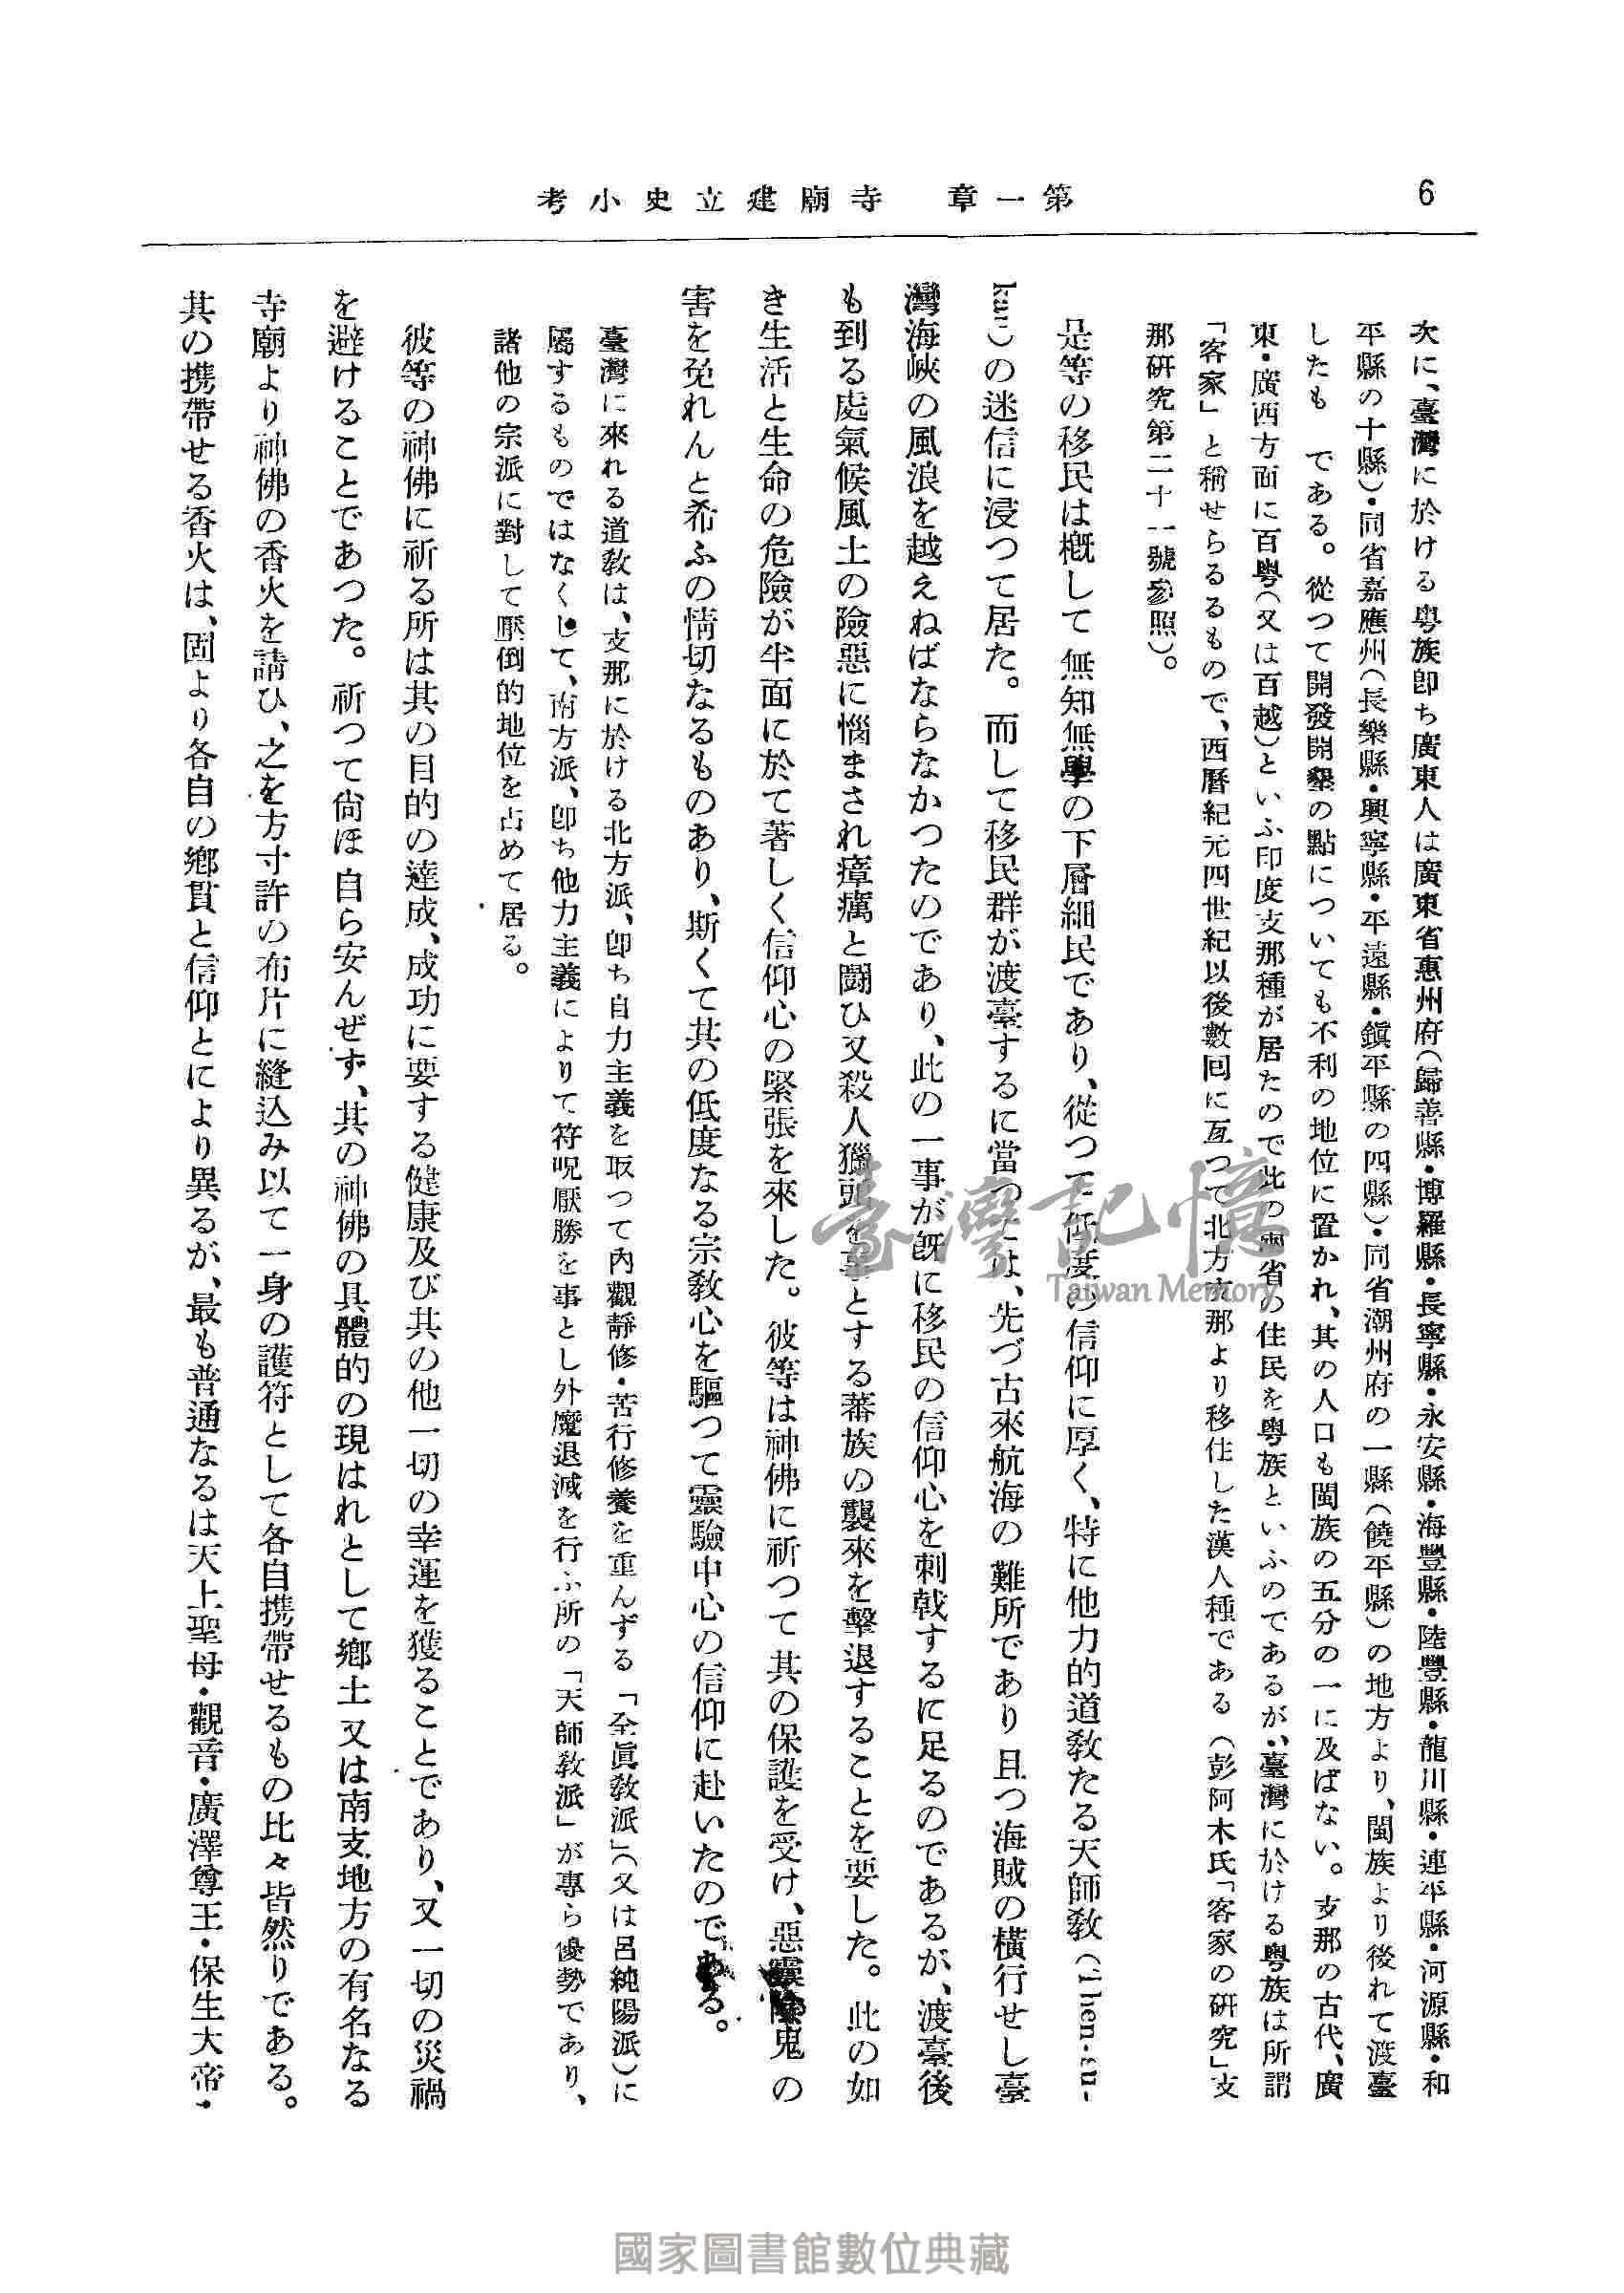 6
第一章　寺廟建立史小考
次に、臺灣に於ける粤族卽ち廣東人は廣東省惠州府(歸善縣・博羅縣・長寧縣・永安縣・海豐縣・陸豐縣・龍川縣・連平縣・河源縣・和
平縣の十縣)・同省嘉應州(長樂縣・興寧縣・平遠縣・鎭平縣の四縣)・同省潮州府の一縣(饒平縣)の地方より、閩族より後れて渡臺
したも　である。從つて開發開墾の點についても不利の地位に置かれ、其の人口も閩族の五分の一に及ばない。支那の古代、廣
東・廣西方面に百粤(又は百越)といふ印度支那種が居たので此の兩省の住民を粤族といふのであるが、臺灣に於ける粤族は所謂
「客家」と稱せらるるもので、西曆紀元四世紀以後數回に亙つて北方支那より移住した漢人種である(彭阿木氏「客家の硏究」支
那硏究第二十一號參照)。
是等の移民は槪して無知無學の下層細民であり、從つて低度の信仰に厚く、特に他力的道敎たる天師敎(
)の迷信に浸つて居た。而して移民群が渡臺するに當つては、先づ古來航海の難所であり且つ海賊の橫行せし臺
灣海峽の風浪を越えねばならなかつたのであり、此の一事が旣に移民の信仰心を刺戟するに足るのであるが、渡臺後
も到る處氣候風土の險惡に惱まされ瘴癘と鬪ひ又殺人獵頭を事とする蕃族の襲來を擊退することを要した。此の如
き生活と生命の危險が半面に於て著しく信仰心の緊張を來した。彼等は神佛に祈つて其の保護を受け、惡靈陰鬼の
害を免れんと希ふの情切なるものあり、斯くて其の低度なる宗敎心を驅つて靈驗中心の信仰に赴いたのである。
臺灣に來れる道敎は、支那に於ける北方派、卽ち自力主義を取つて內觀靜修・苦行修養を重んずる「全眞敎派」(又は呂純陽派)に
屬するものではなくして、南方派、卽ち他力主義によりて符呪厭勝を事とし外魔退滅を行ふ所の「天師敎派」が專ら優勢であり、
諸他の宗派に對して壓倒的地位を占めて居る。
彼等の神佛に祈る所は其の目的の達成、成功に要する健康及び其の他一切の幸運を獲ることであり、又一切の災禍
を避けることであつた。祈つて尙ほ自ら安んぜず、其の神佛の具體的の現はれとして鄕土又は南支地方の有名なる
寺廟より神佛の香火を請ひ、之を方寸許の布片に縫込み以て一身の護符として各自携帶せるもの比々皆然りである。
其の携帶せる香火は、固より各自の鄕貫と信仰とにより異るが、最も普通なるは天上聖母・觀音・廣澤尊王・保生大帝・
臺灣記憶
Taiwan Memory
國家圖書館數位典藏